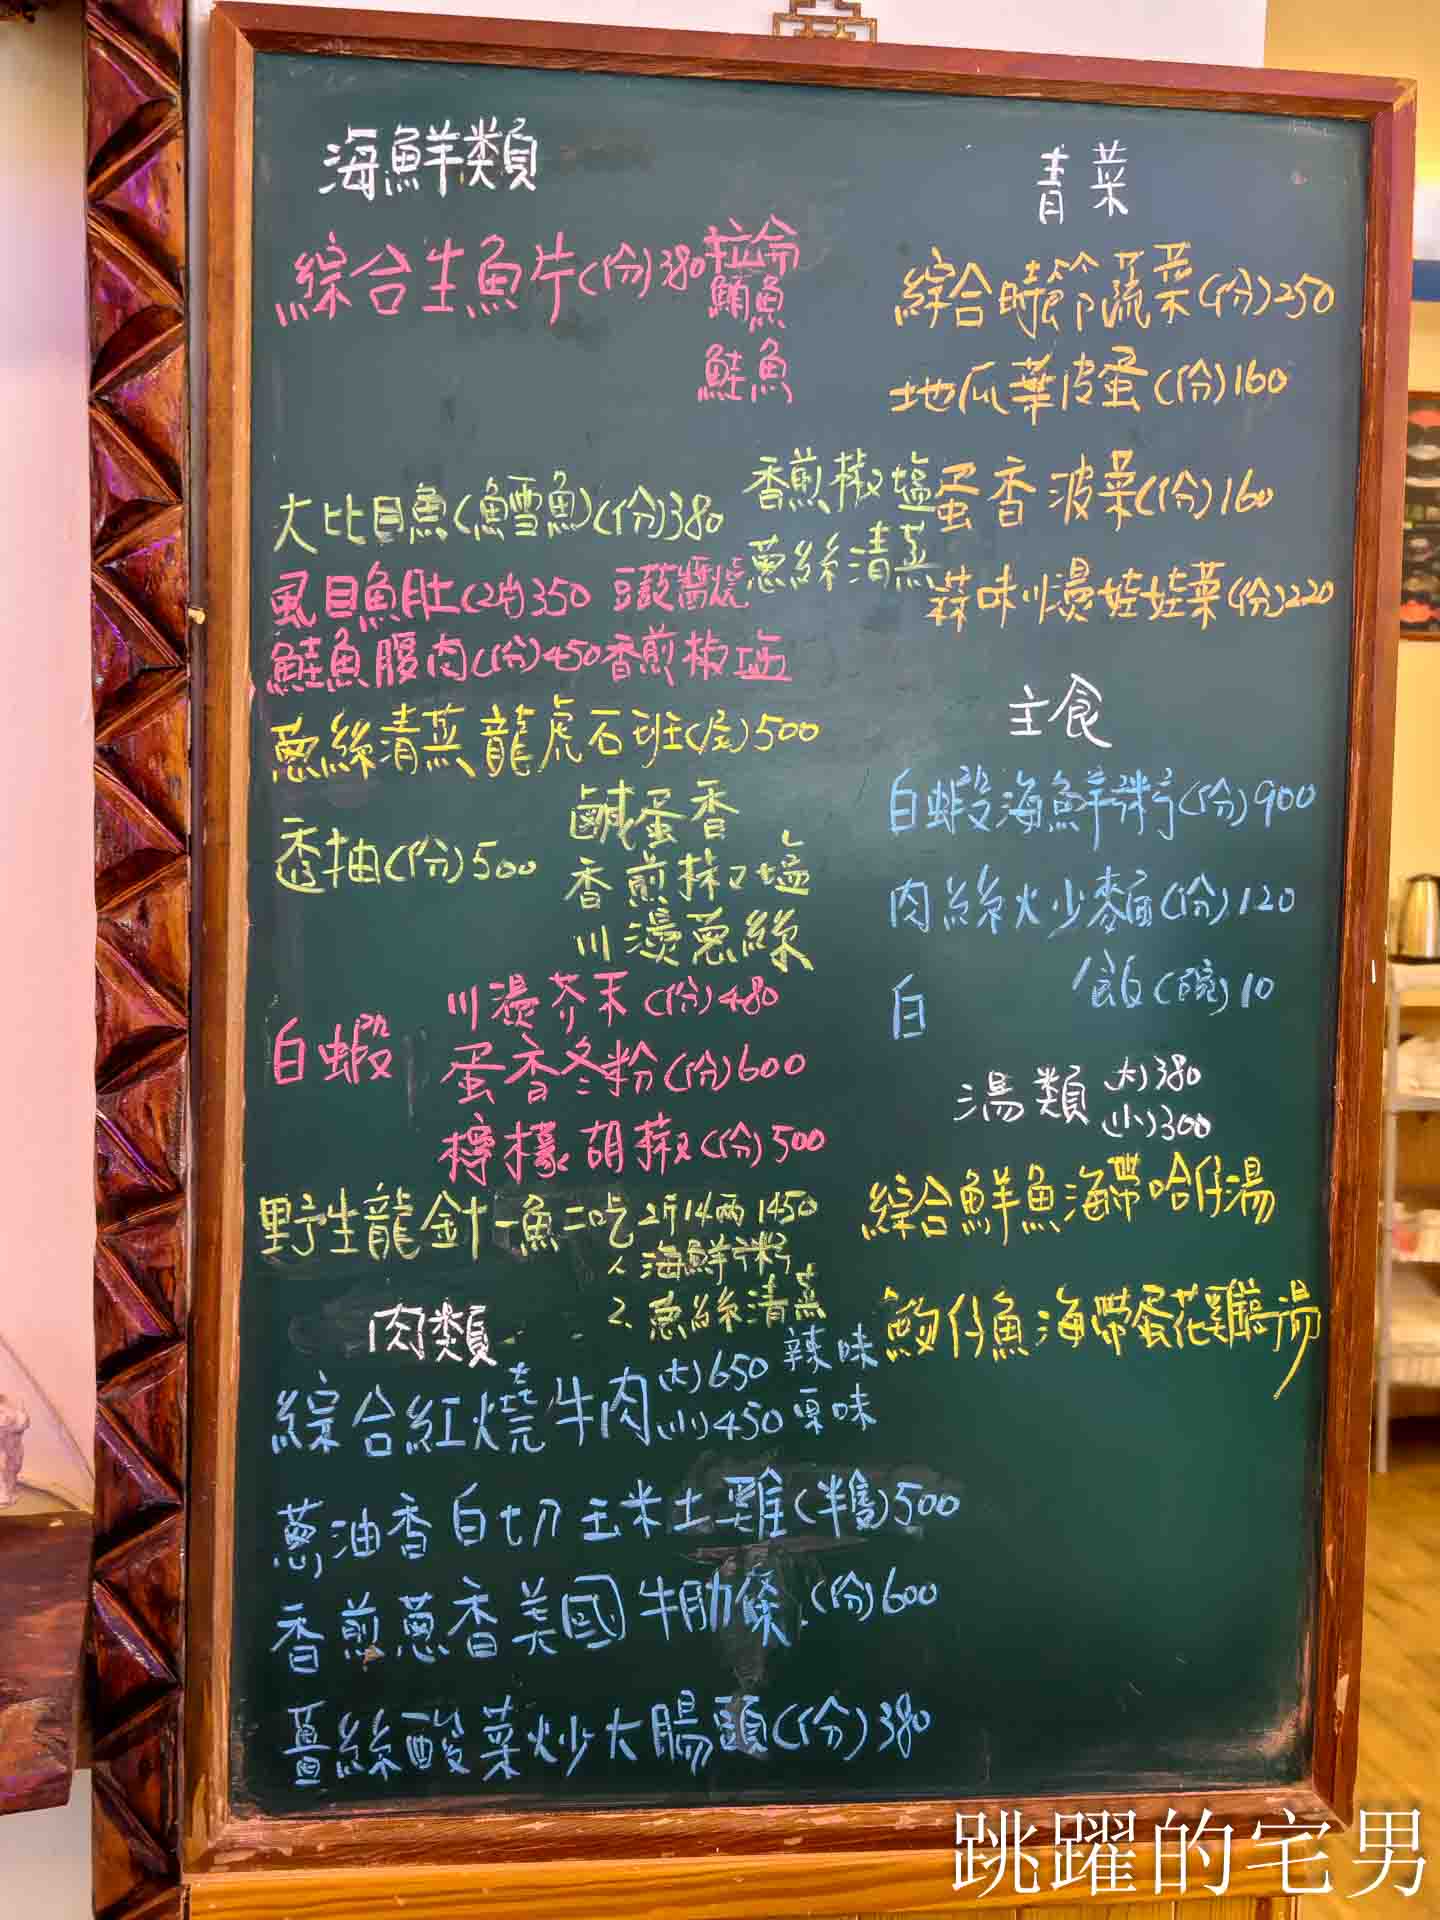 海鮮類
綜合生魚片(份)380
拉侖
鮪魚
鮭魚
大比目魚(鱈魚)(份)380
香煎椒塩
蔥絲清蒸
虱目魚肚(2片)350 豆豉醬燒
鮭魚腹肉(份)450香煎椒塩
蔥絲清蒸龍虎石班(尾)500
透抽(份)500
鹹蛋香
香煎椒塩
川燙蔥絲
白蝦
川燙芥末(份)480
蛋香冬粉(份)600
檸檬胡椒(份)500
野生龍針一魚二吃 2斤14兩 1450
1. 海鮮粥
2. 蔥絲清蒸
肉類
綜合紅燒牛肉
(大)650 辣味
(小)450 原味
蔥油香白切玉米土雞(半隻)500
香煎蔥香美國牛肋條(份)600
薑絲酸菜炒大腸頭(份)380
青菜
綜合時節蔬菜(份)250
地瓜葉皮蛋(份)160
蛋香波菜(份)160
蒜味川燙娃娃菜(份)220
主食
白蝦海鮮粥(份)900
肉絲火少麵(份)120
白 飯(碗)10
湯類
(大)380
(小)300
綜合鮮魚海帶哈仔湯
魩仔魚海帶蛋花雞湯
跳躍的宅男